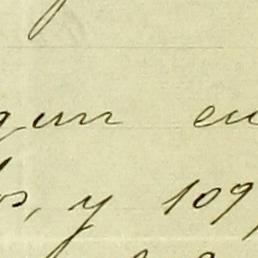 gun en
os, y 109,